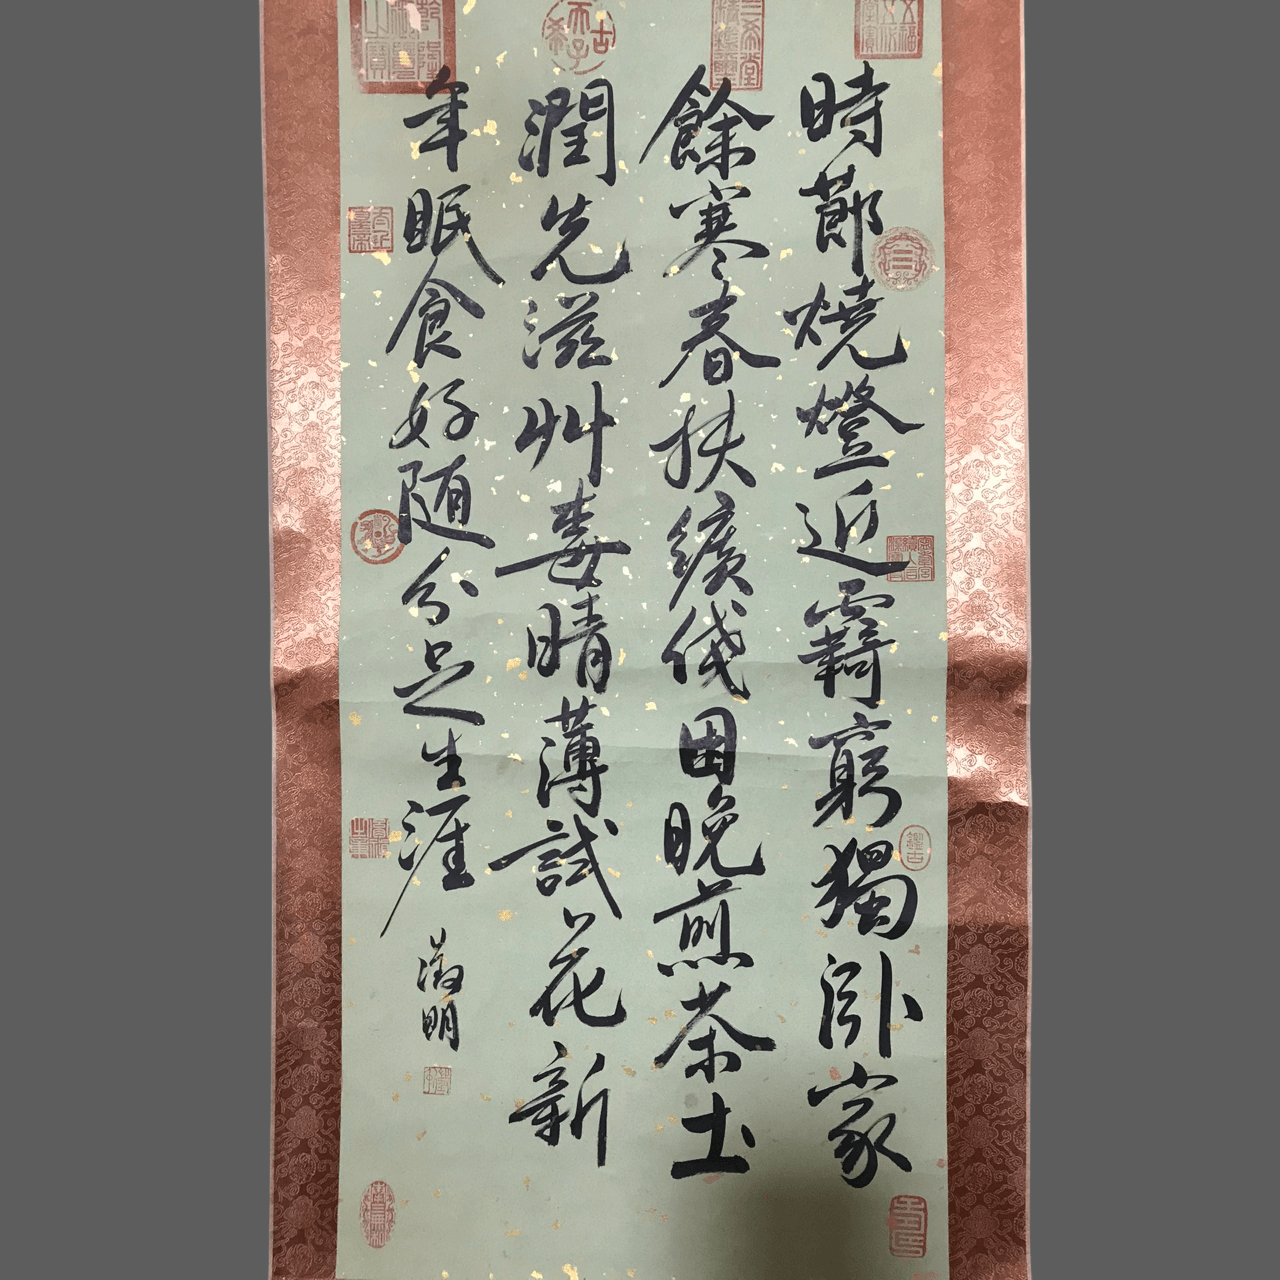 時節燒燈近覉窮獨卧家
餘寒春挟纊困晚煎茶土
潤先滋艸晴薄試花新
年眠食好随分足生涯
徵明